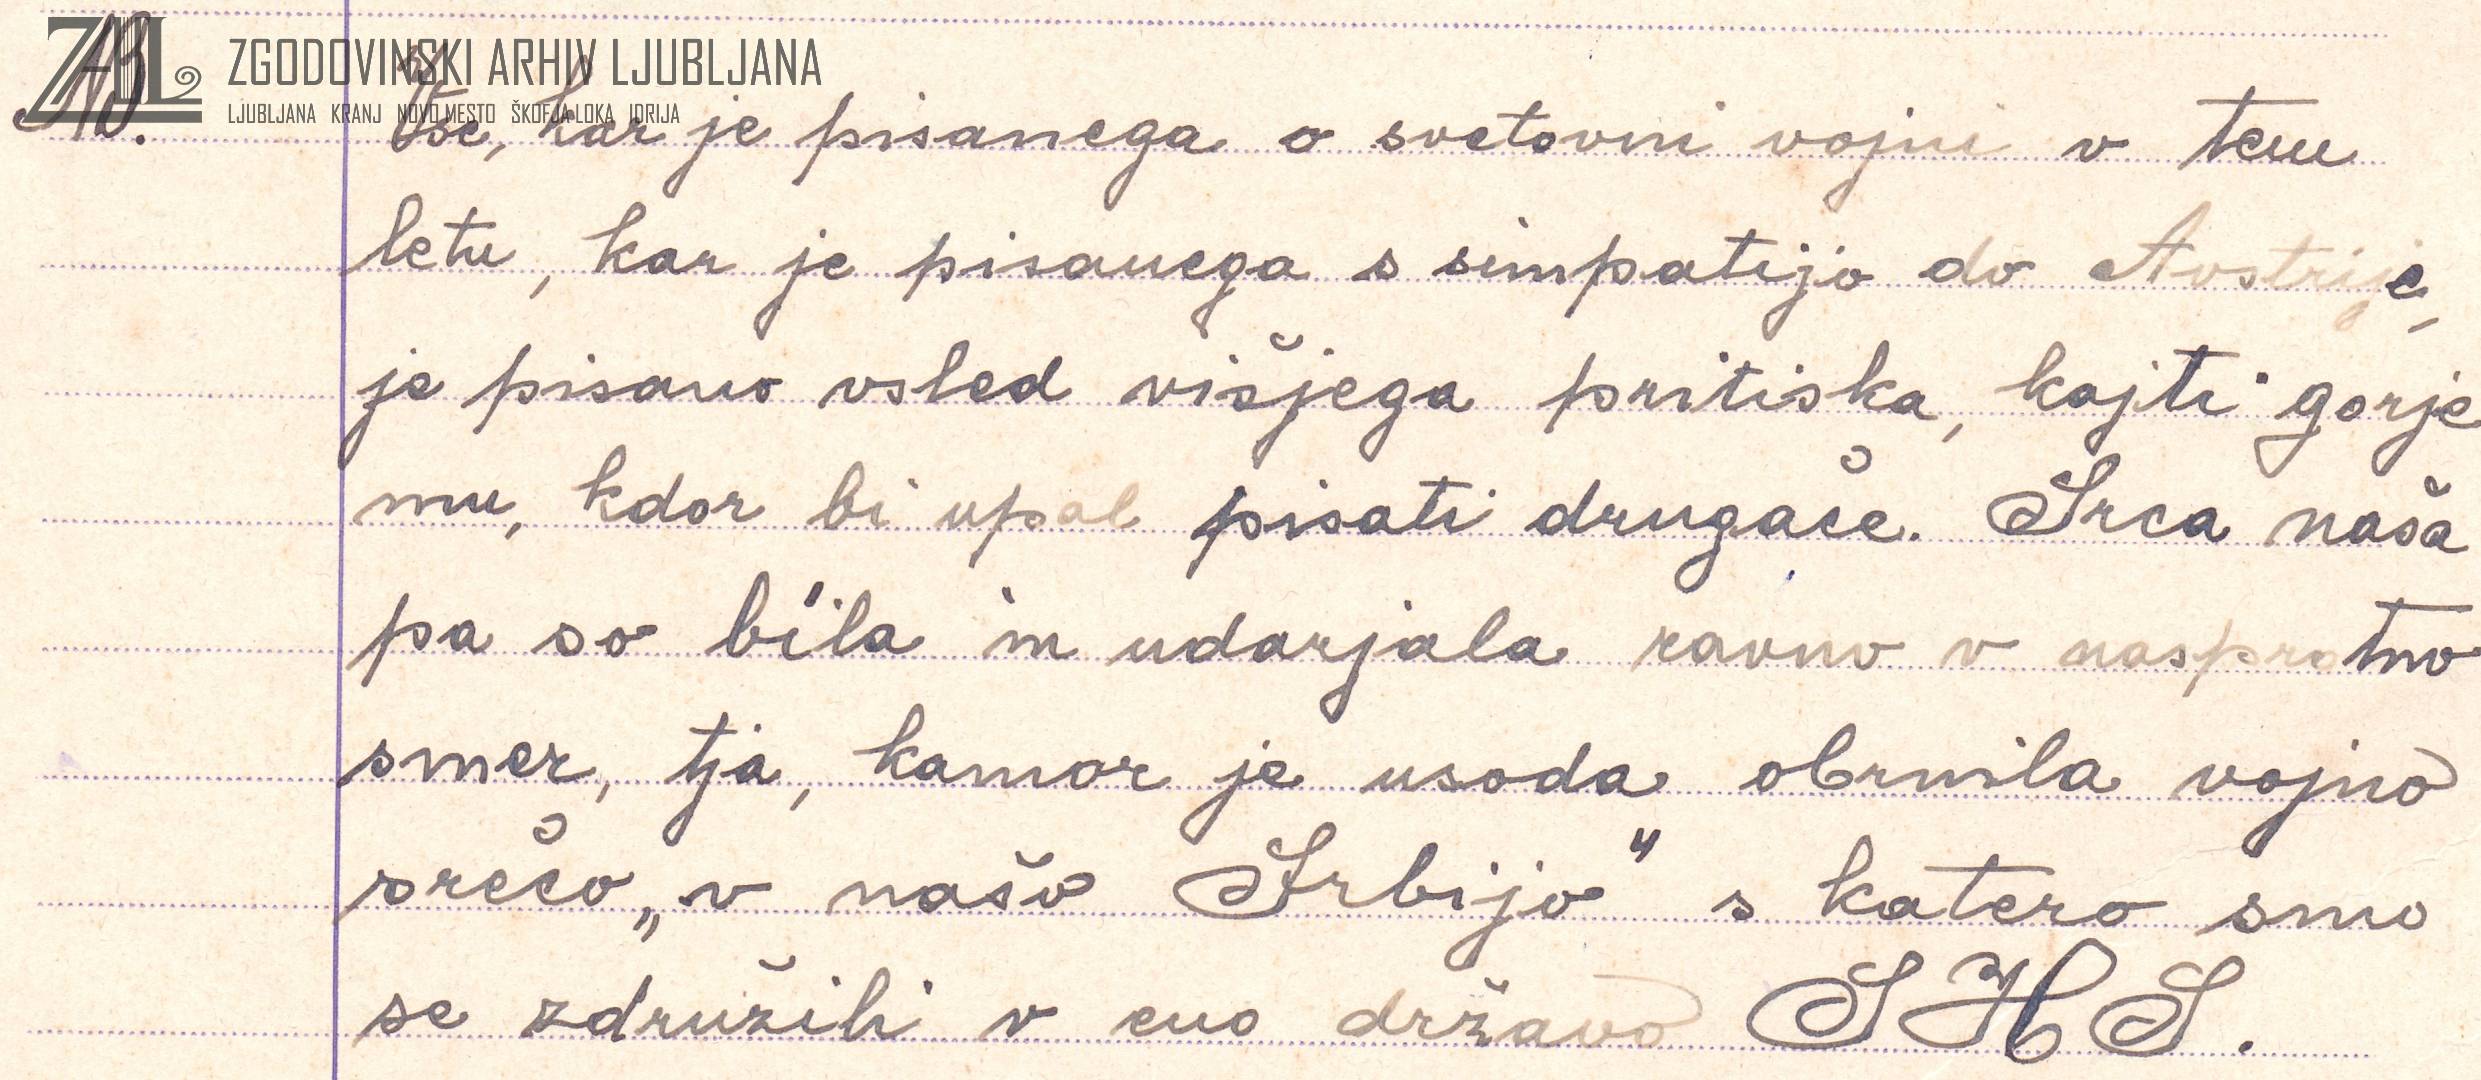 ZAL ZGODOVINSKI ARHIV LJUBLJANA
LJUBLJANA KRANJ NOVO MESTO ŠKOFJA LOKA IDRIJA
Vse, kar je pisanega o svetovni vojni v tem
letu, kar je pisanega s simpatijo do Avstrije,
je pisano vsled višjega pritiska, kajti gorje
mu, kdor bi upal pisati drugače. Srca naša
pa so bila in udarjala ravno v nasprotno
smer, tja, kamor je usoda obrnila vojno
srečo „v našo Srbijo" s katero smo
se združili v eno državo SHS.